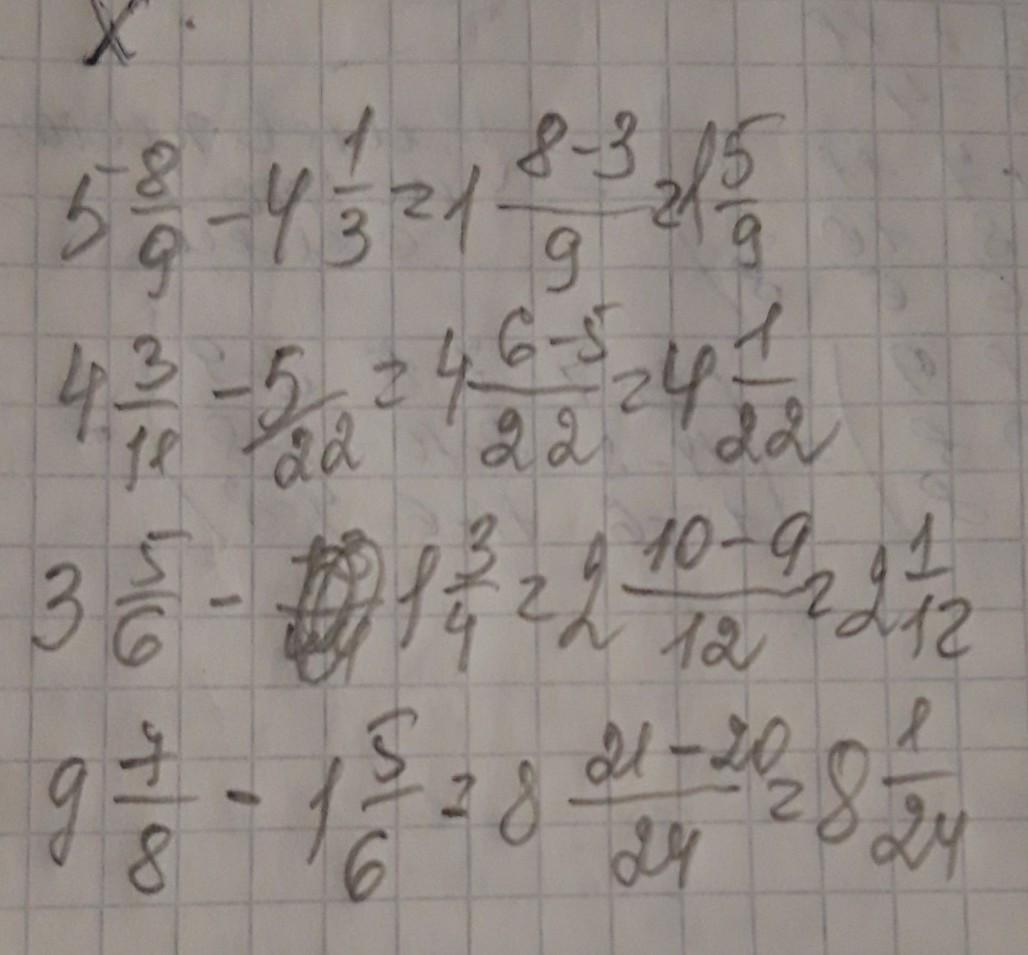 X.
5 8/9 - 4 1/3 = 1 (8-3)/9 = 1 5/9
4 3/11 - 5/22 = 4 (6-5)/22 = 4 1/22
3 5/6 - 1 3/4 = 2 (10-9)/12 = 2 1/12
9 7/8 - 1 5/6 = 8 (21-20)/24 = 8 1/24